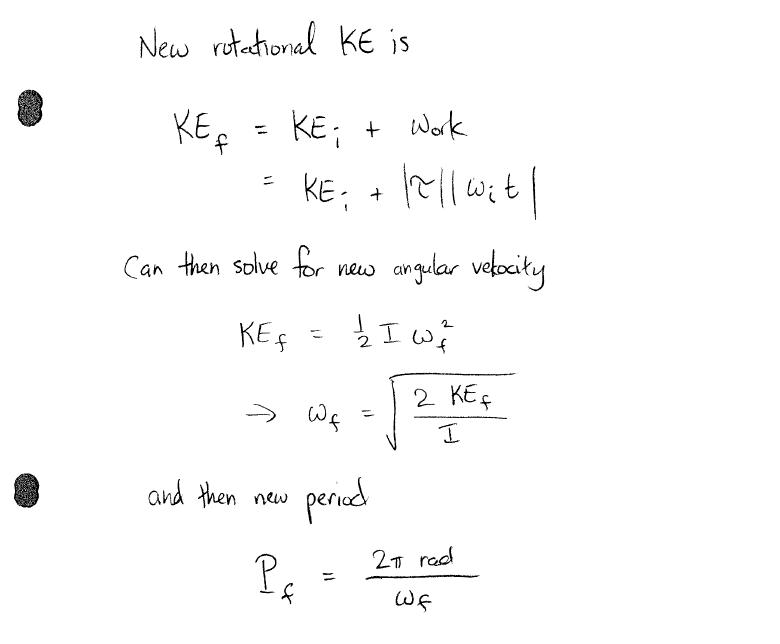 New rotational KE is
KE_f = KE_i + Work
= KE_i + |τ||ω_i t|
Can then solve for new angular velocity
KE_f = 1/2 I ω_f^2
→ ω_f = √(2 KE_f / I)
and then new period
P_f = 2π rad / ω_f